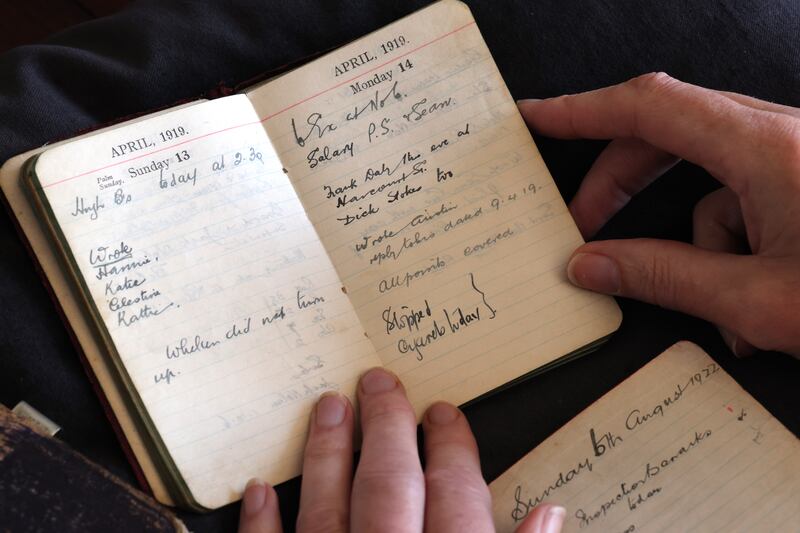 APRIL, 1919.
Palm Sunday, Sunday 13
Hugh Bs today at 2.30
Wrote
Hannie,
Katie
Celestine
Kattie,
Whelan did not turn
up.
APRIL, 1919.
Monday 14
at No 6.
Salary P.S. & Sean.
Frank Daly this eve at
Harcourt St.
Dick Stokes too
Wrote Austin
reply to his dated 9.4.19.
All points covered
Stopped
Cycreb today
Sunday 6th August 1922
Inspection Barracks
today